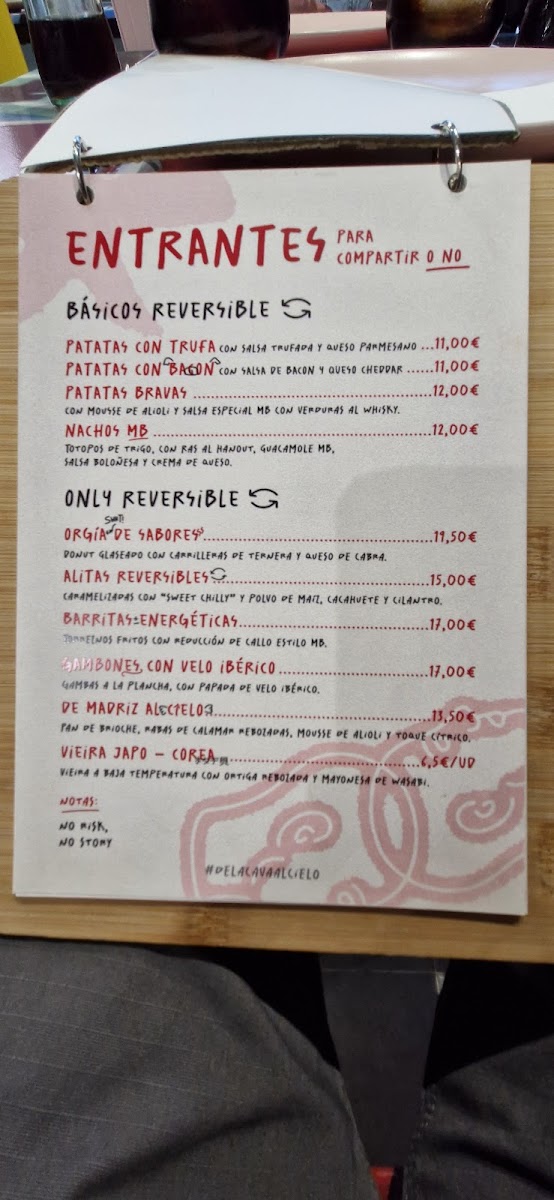 ENTRANTES PARA COMPARTIR O NO
BÁSICOS REVERSIBLE
PATATAS CON TRUFA CON SALSA TRUFADA Y QUESO PARMESANO ...11,00€
PATATAS CON BACON CON SALSA DE BACON Y QUESO CHEDDAR ......11,00€
PATATAS BRAVAS ......12,00€
CON MOUSSE DE ALIOLI Y SALSA ESPECIAL MB CON VERDURAS AL WHISKY.
NACHOS MB ......12,00€
TOTOPOS DE TRIGO, CON RAS AL HANOUT, GUACAMOLE MB,
SALSA BOLOÑESA Y CREMA DE QUESO.
ONLY REVERSIBLE
ORGÍA DE SABORES ......19,50€
DONUT GLASEADO CON CARRILLERAS DE TERNERA Y QUESO DE CABRA.
ALITAS REVERSIBLES ......15,00€
CARAMELIZADAS CON "SWEET CHILLY" Y POLVO DE MAÍZ, CACAHUETE Y CILANTRO.
BARRITAS ENERGÉTICAS ......17,00€
TORREZNOS FRITOS CON REDUCCIÓN DE CALLO ESTILO MB.
GAMBONES CON VELO IBÉRICO ......17,00€
GAMBAS A LA PLANCHA, CON PAPADA DE VELO IBÉRICO.
DE MADRIZ AL CIELO ......13,50€
PAN DE BRIOCHE, RABAS DE CALAMAR REBOZADAS, MOUSSE DE ALIOLI Y TOQUE CÍTRICO.
VIEIRA JAPO - COREA ......6,5€/UD
VIEIRA A BAJA TEMPERATURA CON ORTIGA REBOZADA Y MAYONESA DE WASABI.
NOTAS:
NO RISK,
NO STORY
#DELACAVAALCIELO